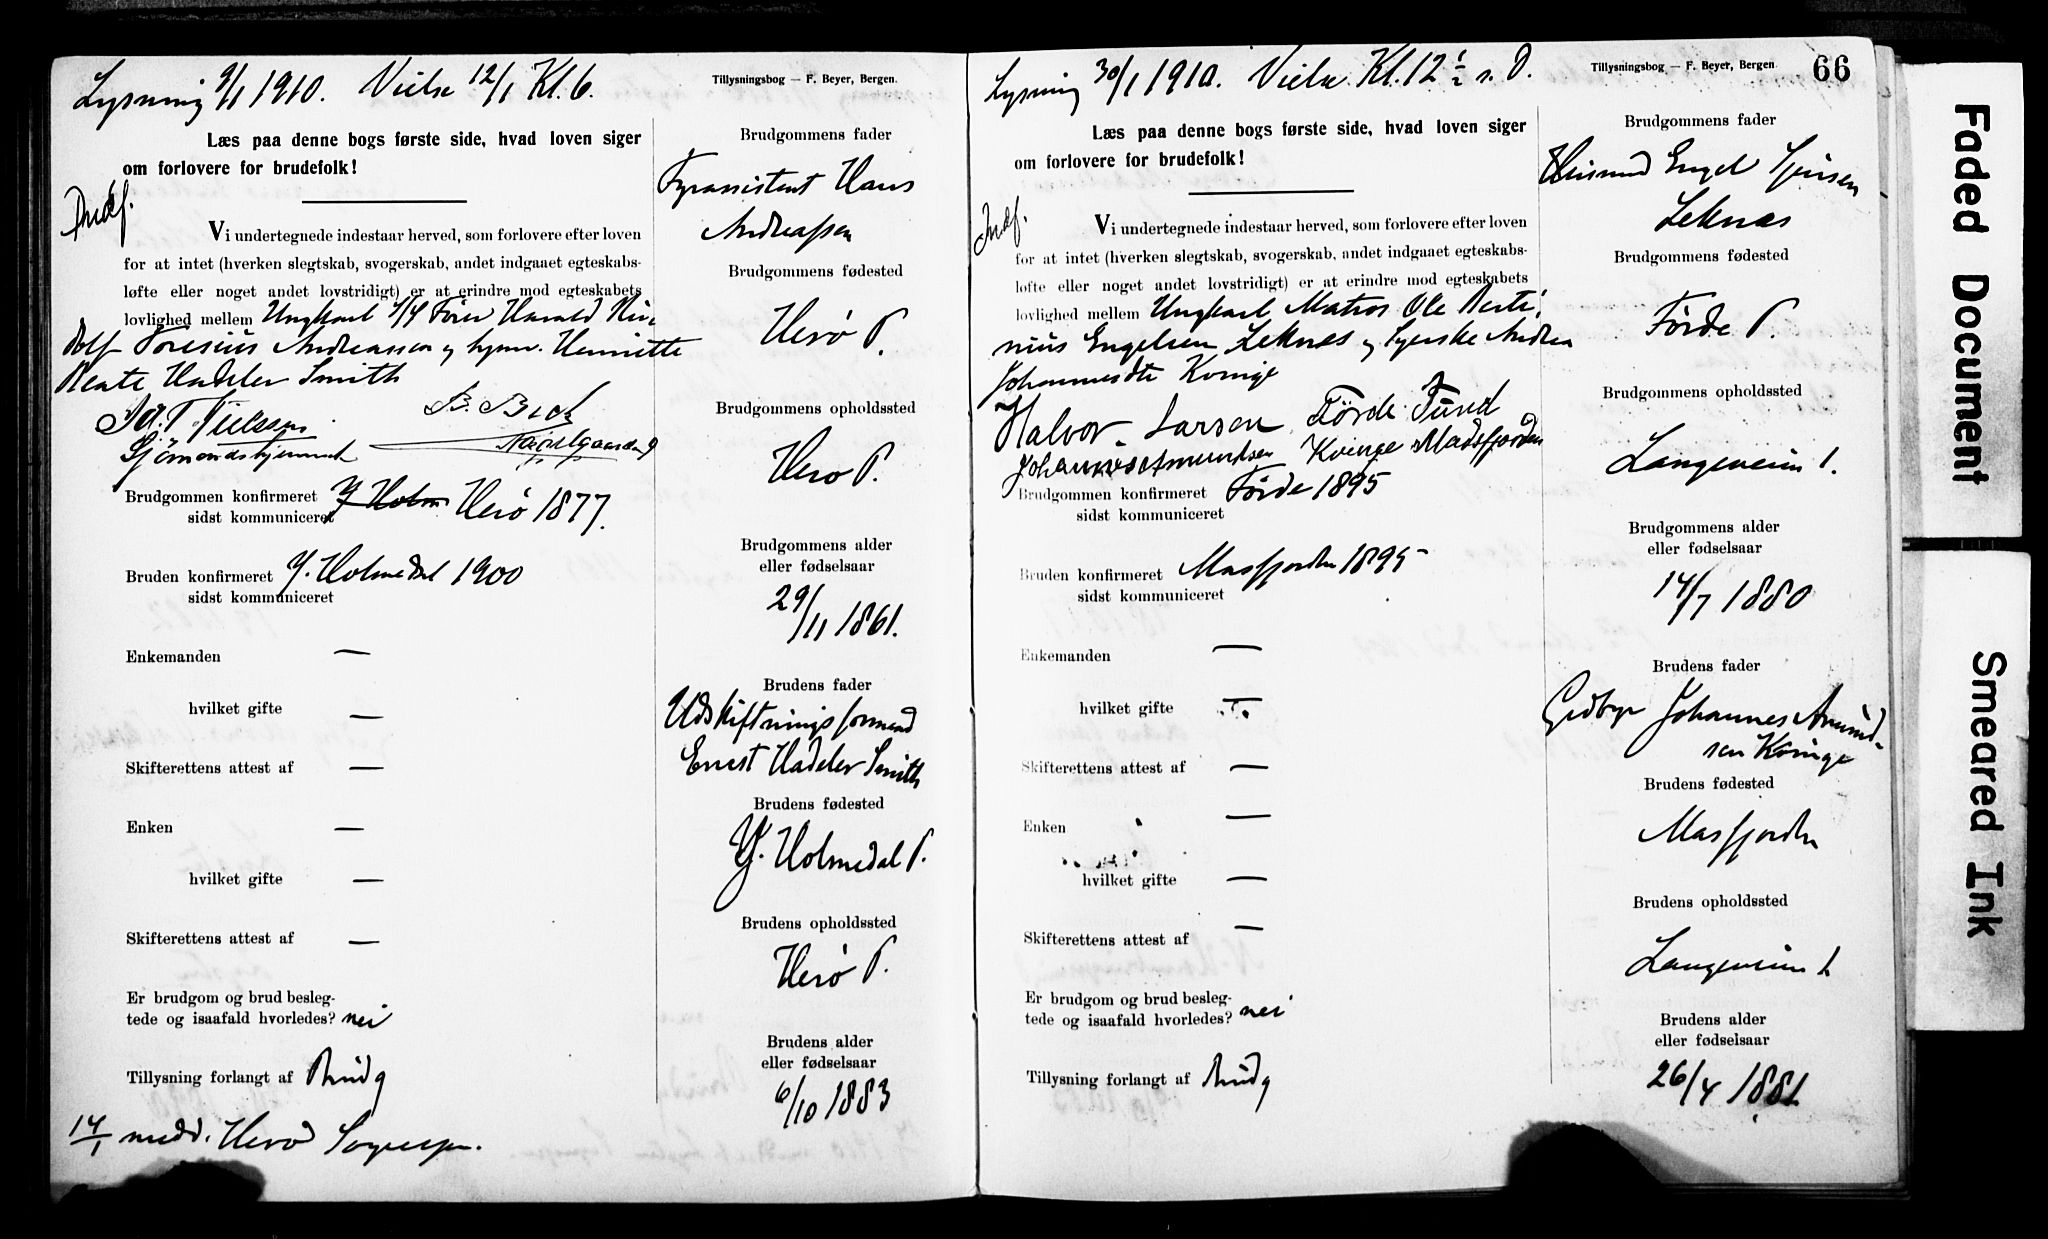 Lysning 9/1 1910. Vielse 12/1 Kl. 6.
Læs paa denne bogs første side, hvad loven siger
om forlovere for brudefolk!
Indf.
Vi undertegnede indestaar herved, som forlovere efter loven
for at intet (hverken slegtskab, svogerskab, andet indgaaet egteskabs-
løfte eller noget andet lovstridigt) er at erindre mod egteskabets
lovlighed mellem Ungkarl Harald
dolf Andreassen og
Beate Hadeler Smith
Nielssen B. Back
Brudgommen konfirmeret Herø 1877.
sidst kommuniceret
Bruden konfirmeret Y. Holmedal 1900
sidst kommuniceret
Enkemanden —
hvilket gifte —
Skifterettens attest af —
Enken —
hvilket gifte —
Skifterettens attest af —
Er brudgom og brud besleg-
tede og isaafald hvorledes? nei
Tillysning forlangt af Brudg
14/1 medd. Herø Sogneprn.
Tillysningsbog — F. Beyer, Bergen.
Brudgommens fader
Fyrassistent Hans
Andreassen
Brudgommens fødested
Herø P.
Brudgommens opholdssted
Herø P.
Brudgommens alder
eller fødselsaar
29/11 1861.
Brudens fader
Udskiftningsformand
Ernst Hadeler Smith
Brudens fødested
Y. Holmedal P.
Brudens opholdssted
Herø P.
Brudens alder
eller fødselsaar
6/10 1883
Lysning 30/1 1910. Vielse Kl. 12 1/2 s. D.
Læs paa denne bogs første side, hvad loven siger
om forlovere for brudefolk!
Indf.
Vi undertegnede indestaar herved, som forlovere efter loven
for at intet (hverken slegtskab, svogerskab, andet indgaaet egteskabs-
løfte eller noget andet lovstridigt) er at erindre mod egteskabets
lovlighed mellem Ungkarl Matros Ole Berti-
nius Engelsen Leknes og Syerske Andrea
Johannesdtr Kvinge
Halvor Larsen Förde Sund
Johannes Amundsen Kvinge Masfjorden
Brudgommen konfirmeret Førde 1895
sidst kommuniceret
Bruden konfirmeret Masfjorden 1895
sidst kommuniceret
Enkemanden —
hvilket gifte —
Skifterettens attest af —
Enken —
hvilket gifte —
Skifterettens attest af —
Er brudgom og brud besleg-
tede og isaafald hvorledes? nei
Tillysning forlangt af Brudg
Tillysningsbog — F. Beyer, Bergen.
66
Brudgommens fader
Husmand Engel Sjursen
Leknes
Brudgommens fødested
Førde P.
Brudgommens opholdssted
Langeveim 1.
Brudgommens alder
eller fødselsaar
14/7 1880
Brudens fader
Grdbr Johannes Amund-
sen Kvinge
Brudens fødested
Masfjorden
Brudens opholdssted
Langeveim 1
Brudens alder
eller fødselsaar
26/4 1881
Faded Document
Smeared Ink